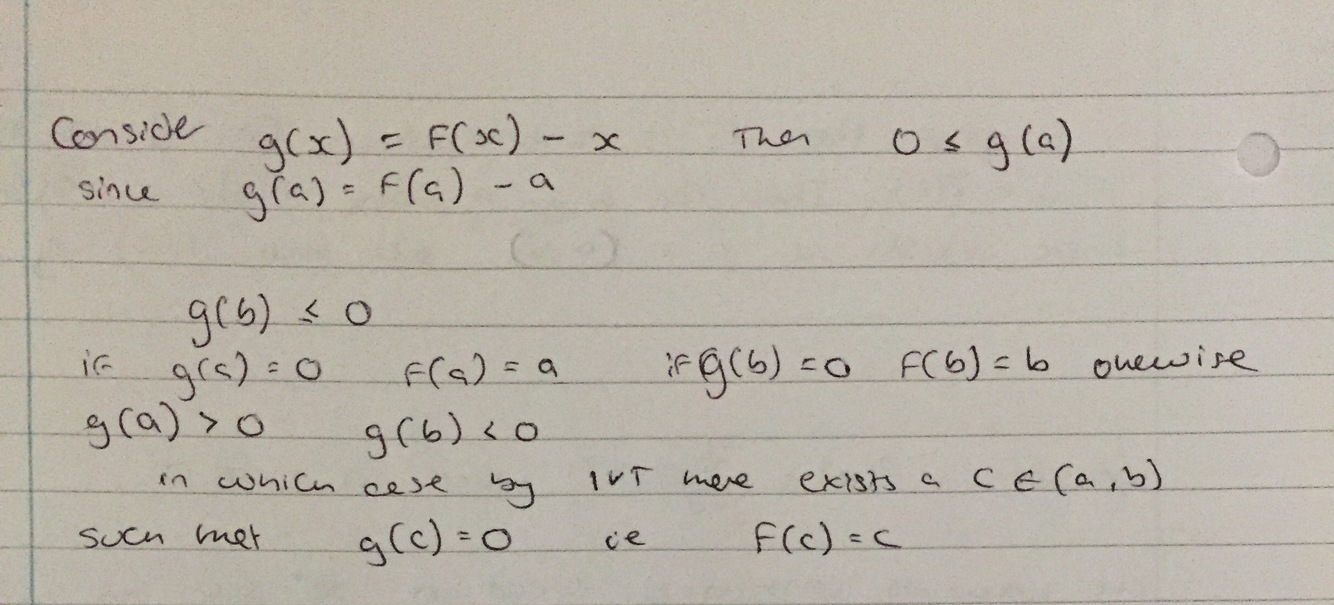 Conside g(x) = F(x) - x Then 0 ≤ g(a)
since g(a) = F(a) - a
g(b) ≤ 0
if g(a) = 0 F(a) = a if g(b) = 0 F(b) = b otherwise
g(a) > 0 g(b) < 0
in which case by IVT there exists a c ∈ (a, b)
such that g(c) = 0 ie F(c) = c